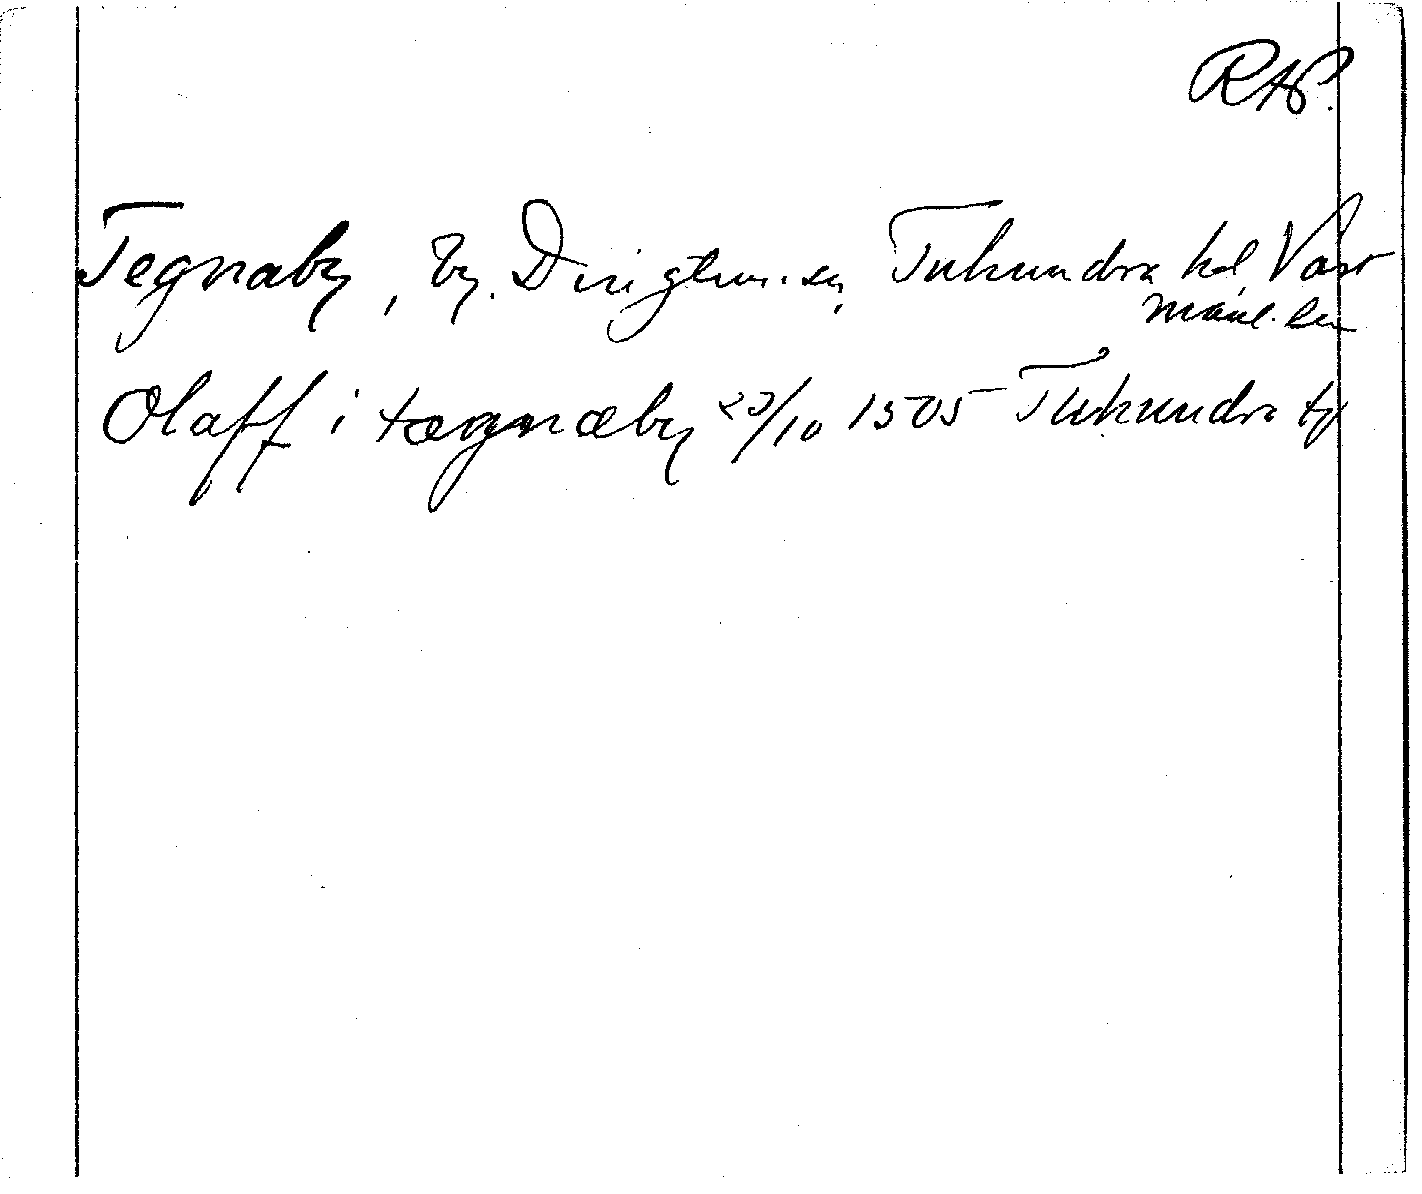 RAP.
Tegnaby, by. Dingtuna sn, Tuhundra hd, Väst
manl. län
Olaff i tægnæby 23/10 1505 Tuhundra tg